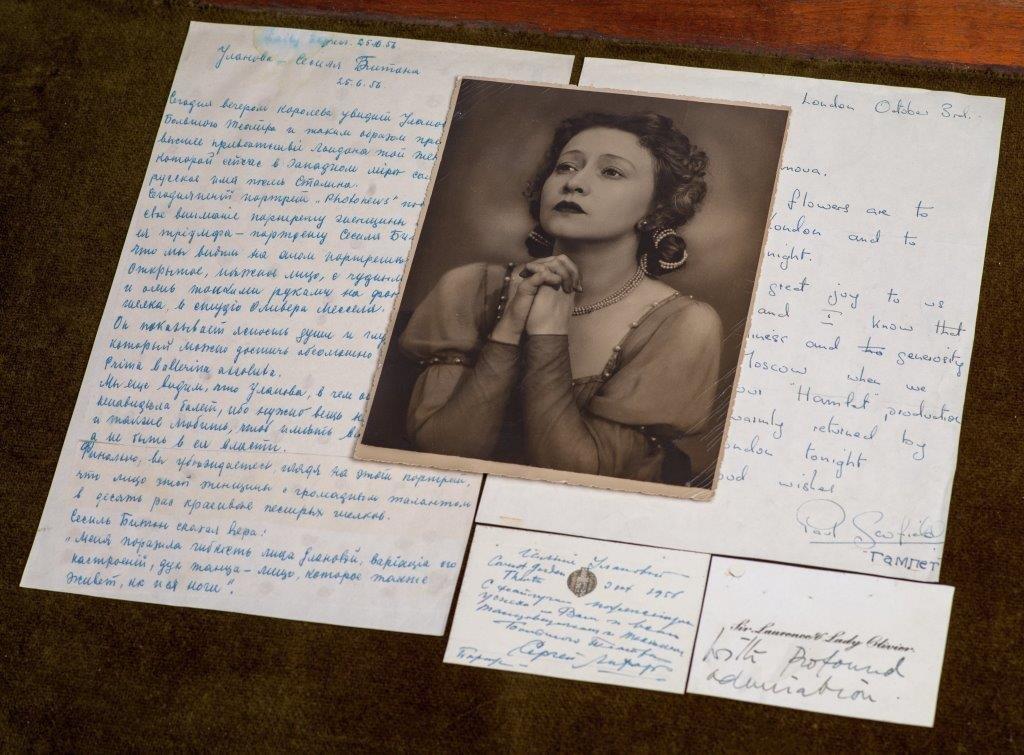 25.6.56
Уланова – Сесиля Битона
25.6.56
Сегодня вечером королева увидит Улан
Большого Театра и таким образом
которой сейчас в Западном мiре
русское имя после Сталина.
Сегодняшний портрет „Photonews"
внимание портрету женщины
ея трiумфа –
что мы видим на этом портрете
Открытое, нежное лицо, с чудным
и очень тонкими руками на фон
шелка, в студiо Оливера Мессела.
Он показывает ясность души и
который можно достичь абсолютно
Prima ballerina assoluta.
Мы еще видим, что Уланова, в
ненавидела балет, ибо нужно
и
а не быть в ея власти.
Финально, вы убеждаетесь, глядя на этот портрет,
что лицо этой женщины с громадным талантом
в десять раз красивее пестрых шелков.
Сесиль Битон сказал вчера:
„Меня поразила гибкость лица Улановой, варiацiя его
настроений, дух танца – лицо, которое также
живет, как и ея ноги".
London October 3rd.
nova.
flowers are to
London and to
night.
great joy to us
and I know that
iness and the generosity
Moscow when we
our "Hamlet" production
warmly returned by
London tonight
ood wishes
Paul Scofield
гамлет
Галине Улановой
Covent Garden
Theatre 3 oct 1956
успеха Вам и всем
Большого Театра
Сергей Лифарь
Париж
Sir Laurence & Lady Olivier.
with profound
admiration.